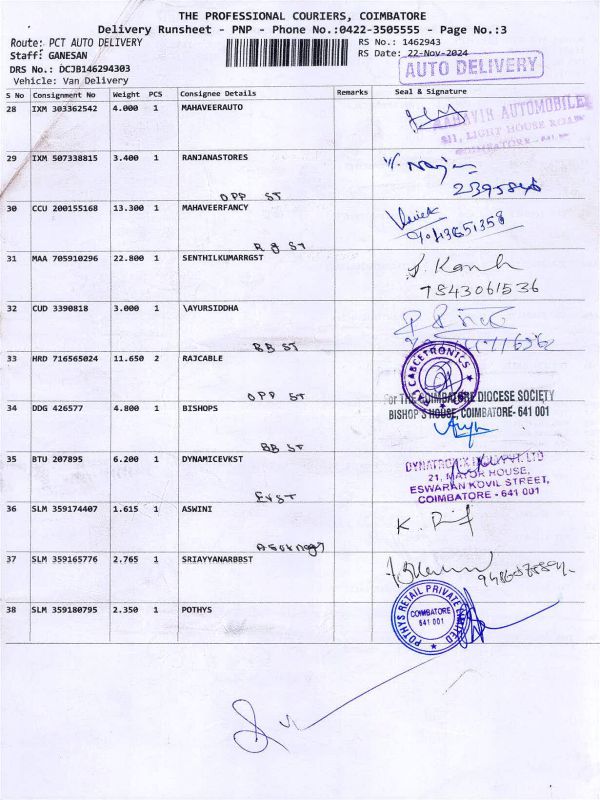 THE PROFESSIONAL COURIERS, COIMBATORE
Delivery Runsheet - PNP - Phone No.:0422-3505555 - Page No.:3
Route: PCT AUTO DELIVERY
RS No.: 1462943
Staff: GANESAN
RS Date: 22-Nov-2024
DRS No.: DCJB146294303
AUTO DELIVERY
Vehicle: Van Delivery
S No Consignment No Weight PCS Consignee Details Remarks Seal & Signature
28 IXM 303362542 4.000 1 MAHAVEERAUTO
MAHAVIR AUTOMOBILE
LIGHT HOUSE ROAD
COIMBATORE
29 IXM 507338815 3.400 1 RANJANASTORES
OPP ST
30 CCU 200155168 13.300 1 MAHAVEERFANCY
R g ST
31 MAA 705910296 22.800 1 SENTHILKUMARRGST
7843061536
32 CUD 3390818 3.000 1 \AYURSIDDHA
BB ST
33 HRD 716565024 11.650 2 RAJCABLE
CABCETRONICS
OPP ST
For THE COIMBATORE DIOCESE SOCIETY
34 DDG 426577 4.800 1 BISHOPS
BISHOP'S HOUSE, COIMBATORE- 641 001
BB ST
35 BTU 207895 6.200 1 DYNAMICEVKST
21, MAYOR HOUSE,
ESWARAN KOVIL STREET,
COIMBATORE - 641 001
EKST
36 SLM 359174407 1.615 1 ASWINI
37 SLM 359165776 2.765 1 SRIAYYANARBBST
38 SLM 359180795 2.350 1 POTHYS
POTHYS RETAIL PRIVATE LIMITED
COIMBATORE
641 001